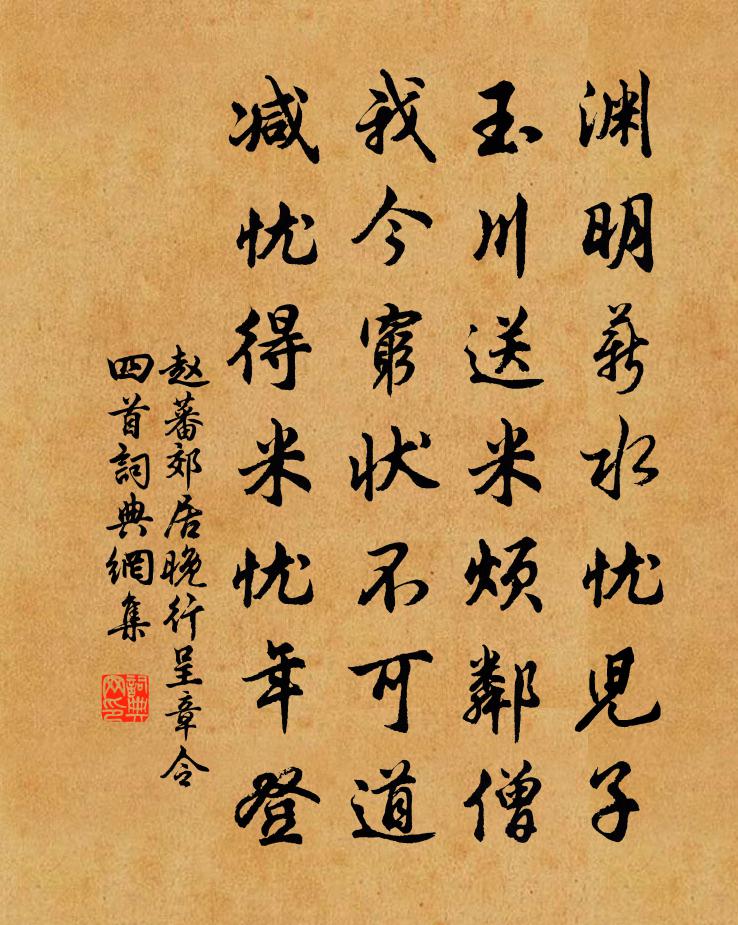 渊明薪水忧児子
玉川送米烦鄰僧
我今窮状不可道
减忧得米忧年登
赵蕃郊居晚行呈章令
四首詞典網集
詞典網印